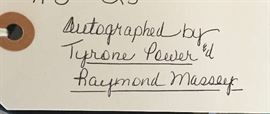 Autographed by
Tyrone Power &
Raymond Massey